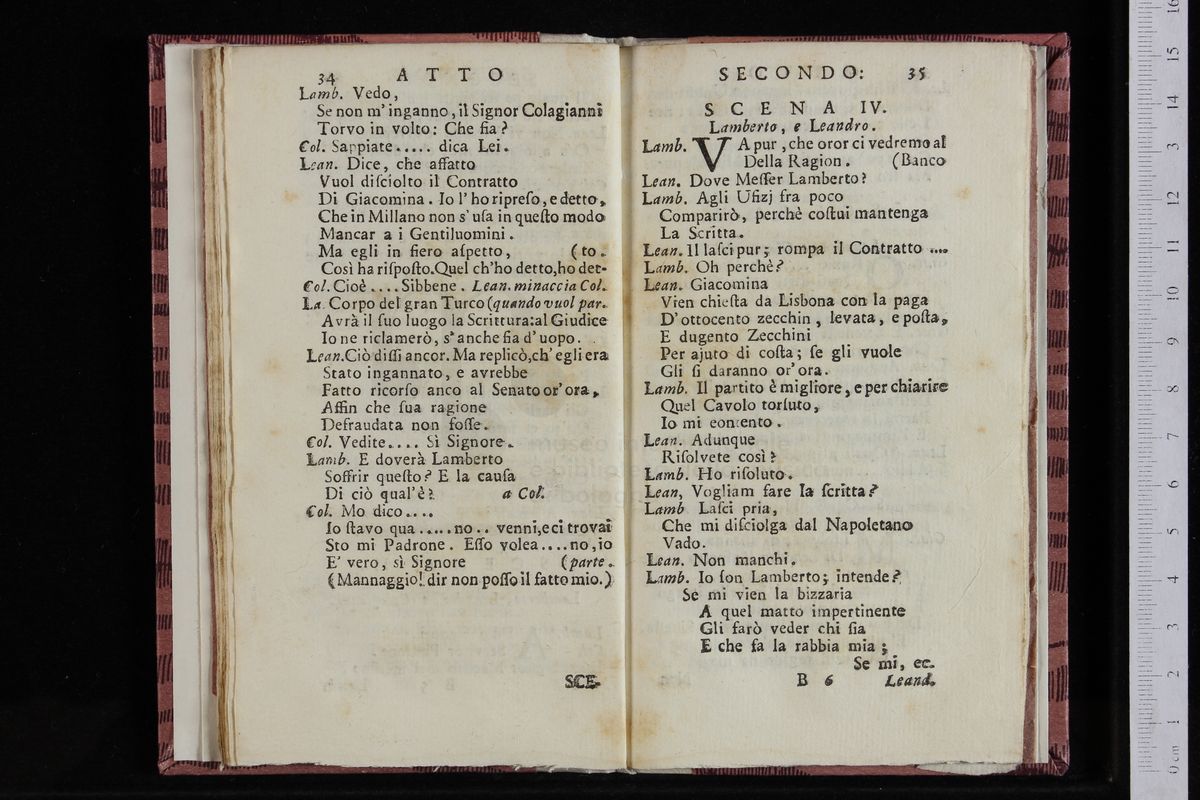 34 ATTO
Lamb. Vedo,
Se non m' inganno, il Signor Colagianni
Torvo in volto: Che ſia?
Col. Sappiate..... dica Lei.
Lean. Dice, che affatto
Vuol diſciolto il Contratto
Di Giacomina. Io l' ho ripreſo, e detto,
Che in Millano non s' uſa in queſto modo
Mancar a i Gentiluomini.
Ma egli in fiero aſpetto, (to.
Così ha riſpoſto. Quel ch'ho detto, ho det-
Col. Cioè .... Sibbene. Lean. minaccia Col.
La. Corpo del gran Turco (quando vuol par.
Avrà il ſuo luogo la Scrittura: al Giudice
Io ne riclamerò, s' anche ſia d' uopo.
Lean. Ciò diſſi ancor. Ma replicò, ch' egli era
Stato ingannato, e avrebbe
Fatto ricorſo anco al Senato or' ora,
Affin che ſua ragione
Defraudata non foſſe.
Col. Vedite.... Sì Signore.
Lamb. E doverà Lamberto
Soffrir queſto? E la cauſa
Di ciò qual' è? a Col.
Col. Mo dico....
Io ſtavo qua ..... no.. venni, e ci trovai
Sto mi Padrone. Eſſo volea.... no, io
E' vero, sì Signore (parte.
(Mannaggio! dir non poſſo il fatto mio.)
SCE-
SECONDO: 35
SCENA IV.
Lamberto, e Leandro.
Lamb. VA pur, che oror ci vedremo al
Della Ragion. (Banco
Lean. Dove Meſſer Lamberto?
Lamb. Agli Ufizj fra poco
Comparirò, perchè coſtui mantenga
La Scritta.
Lean. Il laſci pur; rompa il Contratto ....
Lamb. Oh perchè?
Lean. Giacomina
Vien chieſta da Lisbona con la paga
D' ottocento zecchin, levata, e poſta,
E dugento Zecchini
Per ajuto di coſta; ſe gli vuole
Gli ſi daranno or' ora.
Lamb. Il partito è migliore, e per chiarire
Quel Cavolo torſuto,
Io mi contento.
Lean. Adunque
Riſolvete così?
Lamb. Ho riſoluto.
Lean, Vogliam fare la ſcritta?
Lamb Laſci pria,
Che mi diſciolga dal Napoletano
Vado.
Lean. Non manchi.
Lamb. Io ſon Lamberto; intende?
Se mi vien la bizzaria
A quel matto impertinente
Gli farò veder chi ſia
E che fa la rabbia mia;
Se mi, ec.
B 6 Leand.